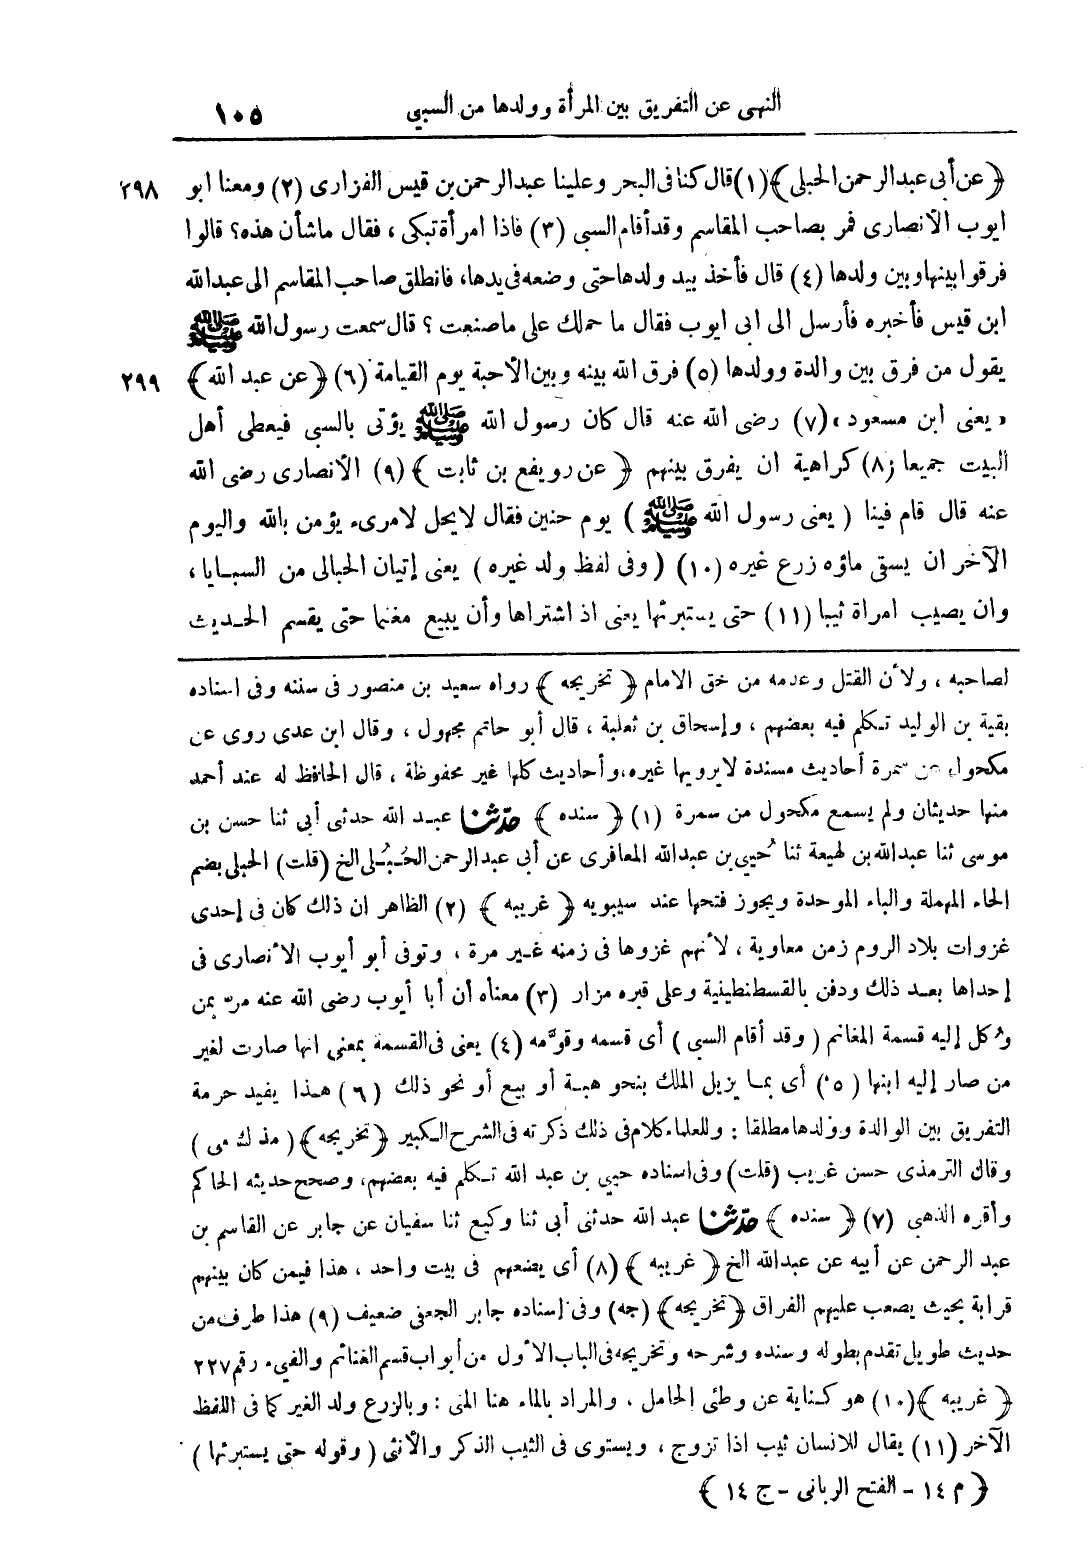 النهى عن التفريق بين المرأة وولدها من السبي ١٠٥
﴿عن أبى عبدالرحمن الحبلى﴾(١) قال كنا فى البحر وعلينا عبدالرحمن بن قيس الفزارى (٢) ومعنا ابو ٢٩٨
ايوب الانصارى فمر بصاحب المقاسم وقد أقام السبى (٣) فاذا امرأة تبكى ، فقال ماشأن هذه؟ قالوا
فرقوا بينها وبين ولدها (٤) قال فأخذ بيد ولدها حتى وضعه فى يدها، فانطلق صاحب المقاسم الى عبدالله
ابن قيس فأخبره فأرسل الى ابى ايوب فقال ما حملك على ماصنعت ؟ قال سمعت رسول الله ﷺ
يقول من فرق بين والدة وولدها (٥) فرق الله بينه وبين الأحبة يوم القيامة (٦) ﴿عن عبد الله﴾ ٢٩٩
«يعنى ابن مسعود»(٧) رضى الله عنه قال كان رسول الله ﷺ يؤتى بالسبى فيعطى أهل
البيت جميعا (٨) كراهية ان يفرق بينهم ﴿عن رويفع بن ثابت﴾ (٩) الأنصارى رضى الله
عنه قال قام فينا (يعنى رسول الله ﷺ) يوم حنين فقال لايحل لامرىء يؤمن بالله واليوم
الآخر ان يسقى ماؤه زرع غيره (١٠) (وفى لفظ ولد غيره) يعنى إتيان الحبالى من السبايا ،
وان يصيب امرأة ثيبا (١١) حتى يستبرئها يعنى اذ اشتراها وأن يبيع مغنما حتى يقسم الحديث
لصاحبه ، ولأن القتل وعدمه من حق الامام ﴿تخريجه﴾ رواه سعيد بن منصور فى سننه وفى اسناده
بقية بن الوليد تكلم فيه بعضهم ، وإسحاق بن ثعلبة ، قال أبو حاتم مجهول ، وقال ابن عدى روى عن
مكحول عن سمرة أحاديث مسندة لا يرويها غيره، وأحاديث كلها غير محفوظة ، قال الحافظ له عند أحمد
منها حديثان ولم يسمع مكحول من سمرة (١) ﴿سنده﴾ حدّثنا عبد الله حدثى أبى ثنا حسن بن
موسى ثنا عبدالله بن لهيعة ثنا حُيي بن عبدالله المعافرى عن أبى عبدالرحمن الحُبُلى الخ (قلت) الحبلى بضم
الحاء المهملة والباء الموحدة ويجوز فتحها عند سيبويه ﴿غريبه﴾ (٢) الظاهر ان ذلك كان فى إحدى
غزوات بلاد الروم زمن معاوية ، لأنهم غزوها فى زمنه غير مرة ، وتوفى أبو أيوب الأنصارى فى
إحداها بعد ذلك ودفن بالقسطنطينية وعلى قبره مزار (٣) معناه أن أبا أيوب رضى الله عنه مرّ بمن
وُكل إليه قسمة المغانم (وقد أقام السبى) أى قسمه وقوّمه (٤) يعنى فى القسمة بمعنى انها صارت لغير
من صار إليه ابنها (٥) أى بما يزيل الملك بنحو هبة أو بيع أو نحو ذلك (٦) هذا يفيد حرمة
التفريق بين الوالدة وولدها مطلقا : وللعلماء كلام فى ذلك ذكرته فى الشرح الكبير ﴿تخريجه﴾ (مذ ك مى)
وقال الترمذى حسن غريب (قلت) وفى اسناده حيي بن عبد الله تكلم فيه بعضهم، وصحح حديثه الحاكم
وأقره الذهبى (٧) ﴿سنده﴾ حدّثنا عبد الله حدثنى أبى ثنا وكيع ثنا سفيان عن جابر عن القاسم بن
عبد الرحمن عن أبيه عن عبدالله الخ ﴿غريبه﴾ (٨) أى يضعهم فى بيت واحد ، هذا فيمن كان بينهم
قرابة بحيث يصعب عليهم الفراق ﴿تخريجه﴾ (جه) وفى إسناده جابر الجعفى ضعيف (٩) هذا طرف من
حديث طويل تقدم بطوله وسنده وشرحه وتخريجه فى الباب الأول من أبواب قسم الغنائم والفىء رقم ٢٢٧
﴿غريبه﴾ (١٠) هو كناية عن وطئى الحامل ، والمراد بالماء هنا المنى : وبالزرع ولد الغير كما فى اللفظ
الآخر (١١) يقال للانسان ثيب اذا تزوج ، ويستوى فى الثيب الذكر والأنثى (وقوله حتى يستبرئها)
﴿م ١٤ - الفتح الربانى - ج ١٤﴾